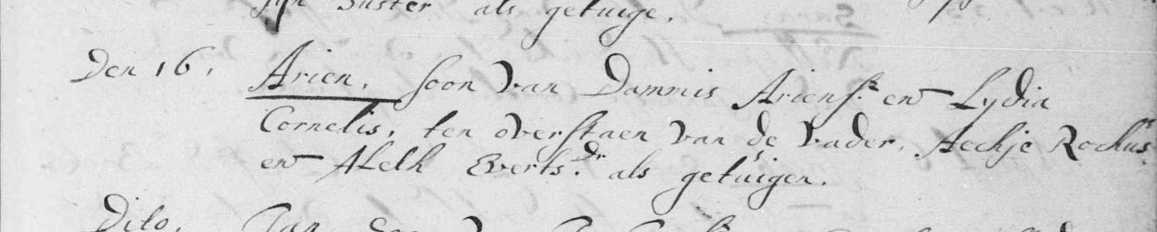 sijn Suster als getuige.
Den 16. Arien, soon van Dammis Ariensz: en Lydia
Cornelis, ten overstaen van de vader, Aechje Rochus
en Aleth Everts Dr. als getuigen.
Dito. Jan